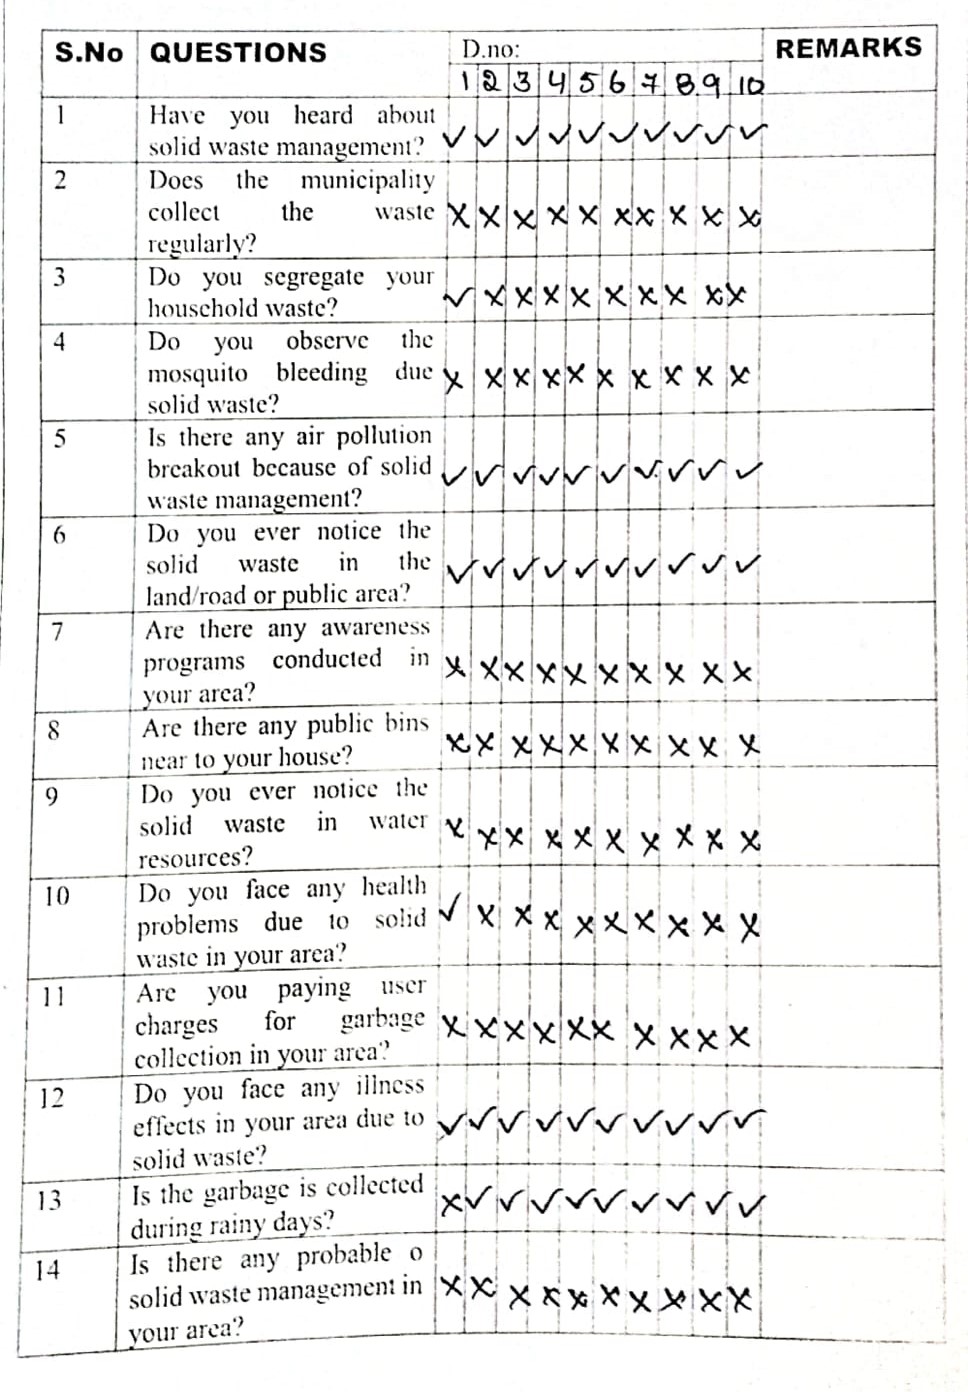 S.No QUESTIONS D.no: REMARKS
1 2 3 4 5 6 7 8 9 10
1 Have you heard about
solid waste management? ✓ ✓ ✓ ✓ ✓ ✓ ✓ ✓ ✓ ✓
2 Does the municipality
collect the waste x x x x x x x x x x
regularly?
3 Do you segregate your
household waste? ✓ x x x x x x x x x
4 Do you observe the
mosquito bleeding due x x x x x x x x x x
solid waste?
5 Is there any air pollution
breakout because of solid ✓ ✓ ✓ ✓ ✓ ✓ ✓ ✓ ✓ ✓
waste management?
6 Do you ever notice the
solid waste in the ✓ ✓ ✓ ✓ ✓ ✓ ✓ ✓ ✓ ✓
land/road or public area?
7 Are there any awareness
programs conducted in x x x x x x x x x x
your area?
8 Are there any public bins
near to your house? x x x x x x x x x x
9 Do you ever notice the
solid waste in water x x x x x x x x x x
resources?
10 Do you face any health
problems due to solid ✓ x x x x x x x x x
waste in your area?
11 Are you paying user
charges for garbage x x x x x x x x x x
collection in your area?
12 Do you face any illness
effects in your area due to ✓ ✓ ✓ ✓ ✓ ✓ ✓ ✓ ✓ ✓
solid waste?
13 Is the garbage is collected
during rainy days? x ✓ ✓ ✓ ✓ ✓ ✓ ✓ ✓ ✓
14 Is there any probable o
solid waste management in x x x x x x x x x x
your area?